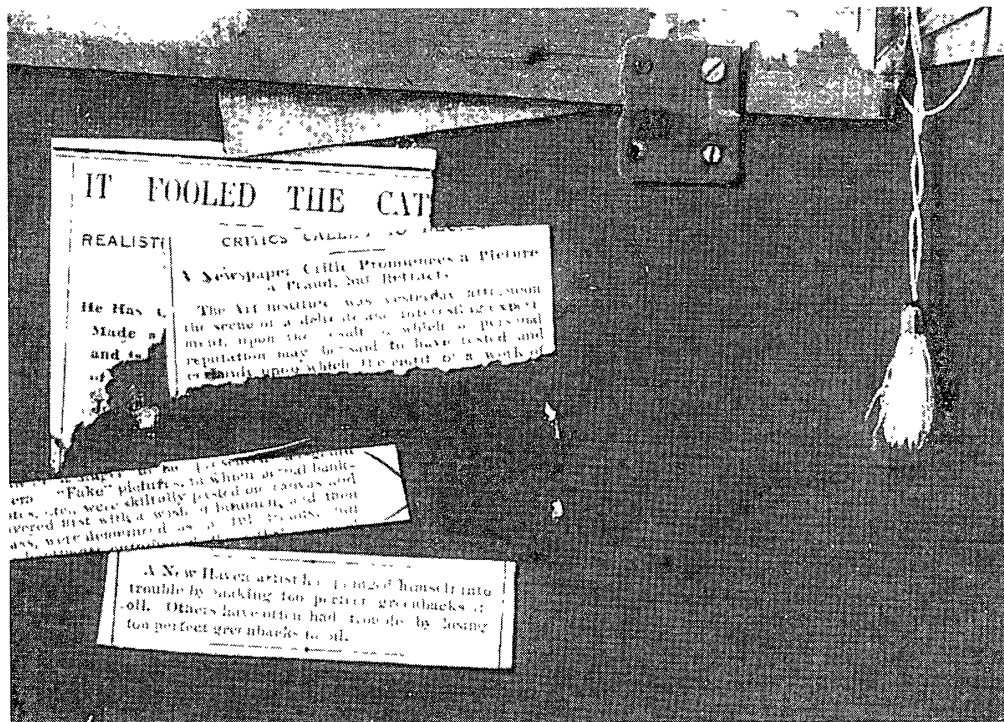 IT FOOLED THE CAT
REALISTI
He Has
Made a
and is
of
CRITICS CALLED TO
A Newspaper Critic Pronounces a Picture
a Fraud, but Retracts
The Art Institute was yesterday afternoon
the scene of a delicate and interesting experi-
ment, upon the result of which a personal
reputation may be said to have rested and
certainly upon which the merit of a work of
"Fake" pictures, in which actual bank-
were skilfully pasted on canvas and
vered first with a wash of and then
ass, were denounced as
A New Haven artist has painted himself into
trouble by making too perfect greenbacks in
oil. Others have often had trouble by losing
too perfect greenbacks in oil.